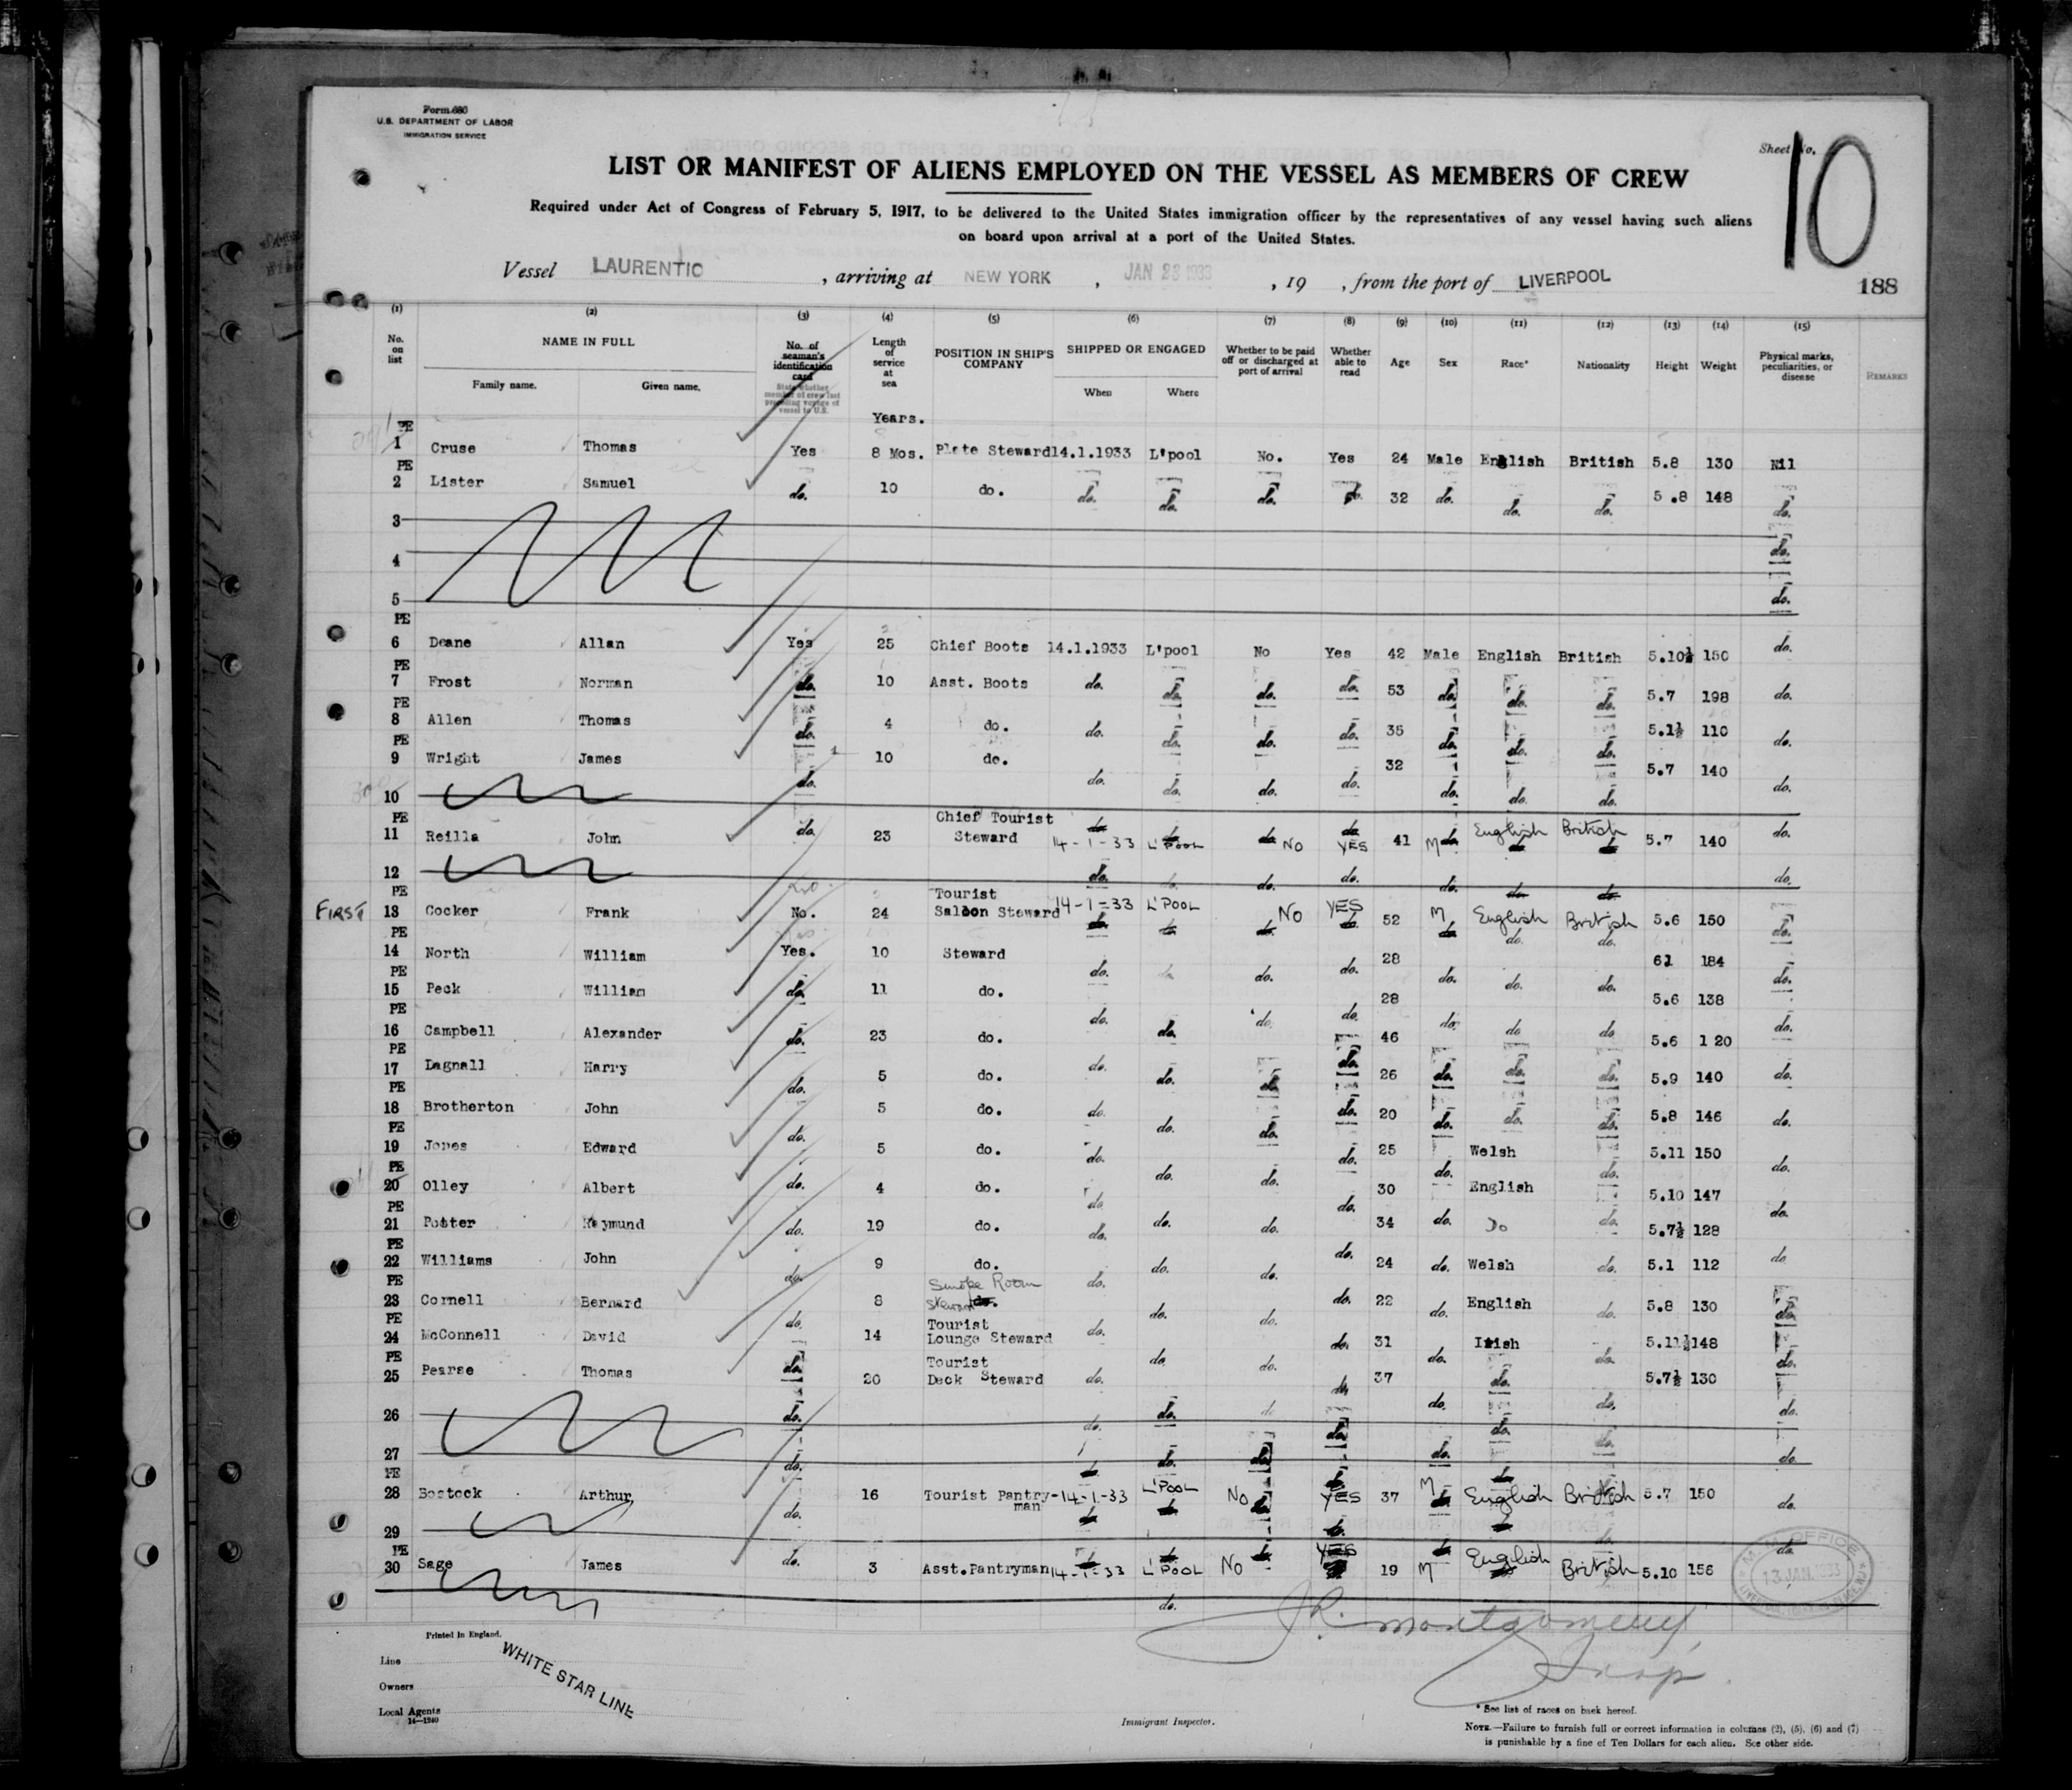 Form 680
U.S. DEPARTMENT OF LABOR
IMMIGRATION SERVICE
Sheet No. 10
LIST OR MANIFEST OF ALIENS EMPLOYED ON THE VESSEL AS MEMBERS OF CREW
Required under Act of Congress of February 5, 1917, to be delivered to the United States immigration officer by the representatives of any vessel having such aliens
on board upon arrival at a port of the United States.
Vessel LAURENTIC , arriving at NEW YORK , JAN 23 1933 , 19 , from the port of LIVERPOOL
188
(1) (2) (3) (4) (5) (6) (7) (8) (9) (10) (11) (12) (13) (14) (15)
No. on list NAME IN FULL Family name. Given name. No. of seaman's identification card State whether member of crew last preceding voyage of vessel to U.S. Length of service at sea POSITION IN SHIP'S COMPANY SHIPPED OR ENGAGED When Where Whether to be paid off or discharged at port of arrival Whether able to read Age Sex Race* Nationality Height Weight Physical marks, peculiarities, or disease REMARKS
Years.
PE 1 Cruse Thomas Yes 8 Mos. Plate Steward 14.1.1933 L'pool No. Yes 24 Male English British 5.8 130 Nil
PE 2 Lister Samuel do. 10 do. do. do. do. do. 32 do. do. do. 5.8 148 do.
3
4 do.
5 do.
PE 6 Deane Allan Yes 25 Chief Boots 14.1.1933 L'pool No Yes 42 Male English British 5.10½ 150 do.
PE 7 Frost Norman do. 10 Asst. Boots do. do. do. do. 53 do. do. do. 5.7 198 do.
PE 8 Allen Thomas do. 4 do. do. do. do. do. 35 do. do. do. 5.1½ 110 do.
PE 9 Wright James do. 10 do. do. do. do. do. 32 do. do. do. 5.7 140 do.
10
PE 11 Reilla John do. 23 Chief Tourist Steward 14-1-33 L'POOL NO YES 41 M English British 5.7 140 do.
12 do. do. do. do. do. do. do. do.
FIRST PE 13 Cocker Frank No. 24 Tourist Saloon Steward 14-1-33 L'POOL NO YES 52 M English British 5.6 150 do.
PE 14 North William Yes. 10 Steward do. do. do. do. 28 do. do. do. 61 184 do.
PE 15 Peck William do. 11 do. do. do. do. 28 do. do. do. 5.6 138 do.
PE 16 Campbell Alexander do. 23 do. do. do. do. do. 46 do. do do. 5.6 120 do.
PE 17 Dagnall Harry do. 5 do. do. do. do. do. 26 do. do. do. 5.9 140 do.
PE 18 Brotherton John do. 5 do. do. do. do. do. 20 do. do. do. 5.8 146 do.
PE 19 Jones Edward do. 5 do. do. do. do. do. 25 do. Welsh do. 5.11 150 do.
PE 20 Olley Albert 4 do. do. do. 30 English 5.10 147 do.
PE 21 Potter Raymund do. 19 do. do. do. do. 34 do. Do do. 5.7½ 128
PE 22 Williams John do. 9 do. do. do. do. do. 24 do. Welsh do. 5.1 112 do
PE 23 Cornell Bernard do. 8 Smoke Room Steward do. do. do. 22 do. English do. 5.8 130 do.
PE 24 McConnell David 14 Tourist Lounge Steward do. do. do. do. 31 do. Irish do. 5.11½ 148 do.
PE 25 Pearse Thomas do. 20 Tourist Deck Steward do. do. do. 37 do. do. do. 5.7½ 130 do.
26 do. do. do. do do. do. do.
27 do. do. do. do. do.
PE 28 Bostock Arthur do. 16 Tourist Pantry-man 14-1-33 L'POOL NO YES 37 M English British 5.7 150 do.
29
PE 30 Sage James do. 3 Asst. Pantryman 14-1-33 L'POOL NO YES 19 M English British 5.10 156 do.
do.
M.M. OFFICE
13 JAN. 1933
J R. Montgomery
Insp.
Printed in England.
Line WHITE STAR LINE
Owners
Local Agents
14—1240
Immigrant Inspector.
* See list of races on back hereof.
NOTE.—Failure to furnish full or correct information in columns (2), (5), (6) and (7)
is punishable by a fine of Ten Dollars for each alien. See other side.